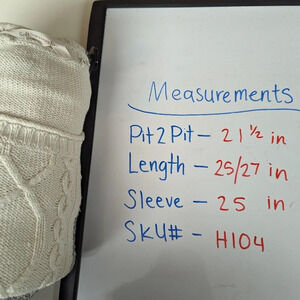 Measurements
Pit2Pit – 21 1/2 in
Length – 25/27 in
Sleeve – 25 in
SKU# – H104